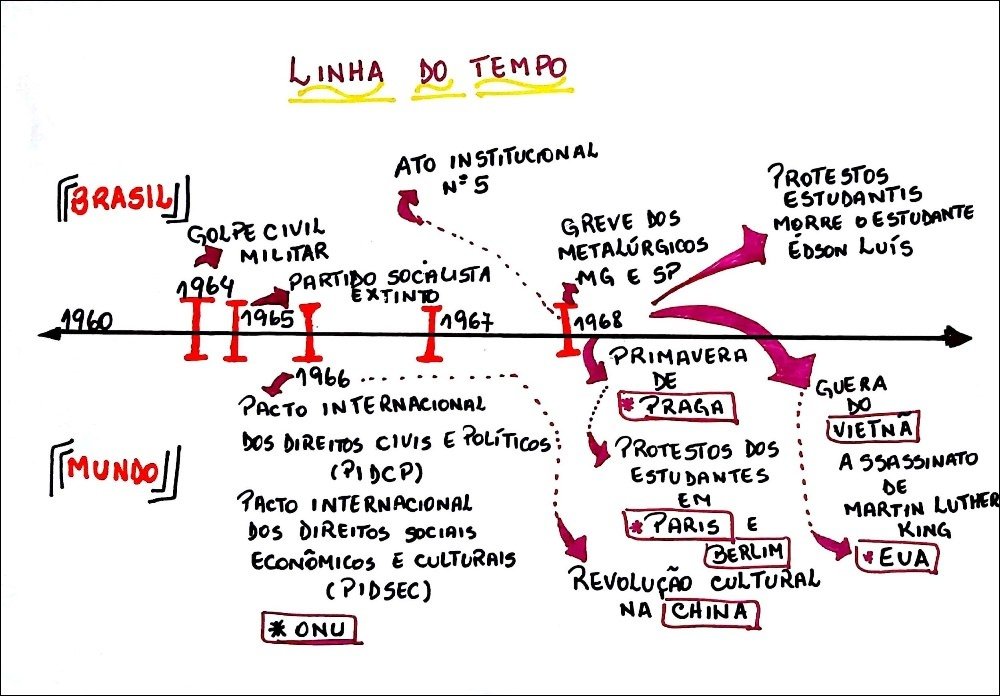 LINHA DO TEMPO
BRASIL
ATO INSTITUCIONAL
Nº 5
GOLPE CIVIL
MILITAR
GREVE DOS
METALÚRGICOS
MG E SP
PROTESTOS
ESTUDANTIS
MORRE O ESTUDANTE
ÉDSON LUÍS
PARTIDO SOCIALISTA
EXTINTO
1960
1964
1965
1967
1968
1966
MUNDO
PACTO INTERNACIONAL
DOS DIREITOS CIVIS E POLÍTICOS
(PIDCP)
PACTO INTERNACIONAL
DOS DIREITOS SOCIAIS
ECONÔMICOS E CULTURAIS
(PIDSEC)
* ONU
PRIMAVERA
DE
* PRAGA
PROTESTOS DOS
ESTUDANTES
EM
* PARIS E
BERLIM
REVOLUÇÃO CULTURAL
NA CHINA
GUERA
DO
VIETNÃ
ASSASSINATO
DE
MARTIN LUTHER
KING
* EUA